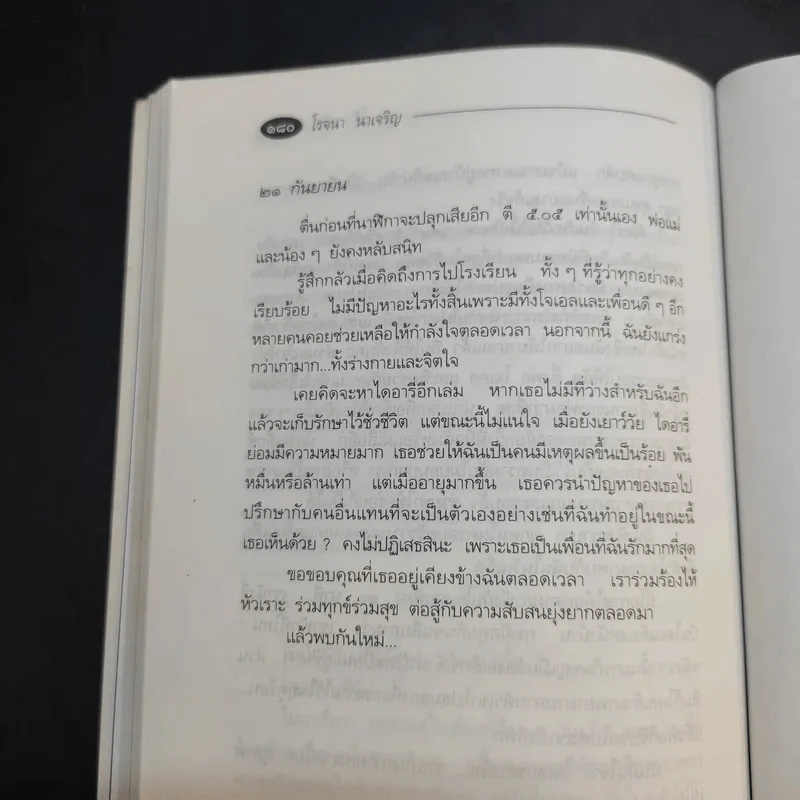 ๑๘๐ โรจนา นาเจริญ
๒๑ กันยายน
ตื่นก่อนที่นาฬิกาจะปลุกเสียอีก ตี ๕.๐๕ เท่านั้นเอง พ่อแม่
และน้อง ๆ ยังคงหลับสนิท
รู้สึกกลัวเมื่อคิดถึงการไปโรงเรียน ทั้ง ๆ ที่รู้ว่าทุกอย่างคง
เรียบร้อย ไม่มีปัญหาอะไรทั้งสิ้นเพราะมีทั้งโจเอลและเพื่อนดี ๆ อีก
หลายคนคอยช่วยเหลือให้กำลังใจตลอดเวลา นอกจากนี้ ฉันยังแกร่ง
กว่าเก่ามาก...ทั้งร่างกายและจิตใจ
เคยคิดจะหาไดอารี่อีกเล่ม หากเธอไม่มีที่ว่างสำหรับฉันอีก
แล้วจะเก็บรักษาไว้ชั่วชีวิต แต่ขณะนี้ไม่แน่ใจ เมื่อยังเยาว์วัย ไดอารี่
ย่อมมีความหมายมาก เธอช่วยให้ฉันเป็นคนมีเหตุผลขึ้นเป็นร้อย พัน
หมื่นหรือล้านเท่า แต่เมื่ออายุมากขึ้น เธอควรนำปัญหาของเธอไป
ปรึกษากับคนอื่นแทนที่จะเป็นตัวเองอย่างเช่นที่ฉันทำอยู่ในขณะนี้
เธอเห็นด้วย ? คงไม่ปฏิเสธสินะ เพราะเธอเป็นเพื่อนที่ฉันรักมากที่สุด
ขอขอบคุณที่เธออยู่เคียงข้างฉันตลอดเวลา เราร่วมร้องไห้
หัวเราะ ร่วมทุกข์ร่วมสุข ต่อสู้กับความสับสนยุ่งยากตลอดมา
แล้วพบกันใหม่...